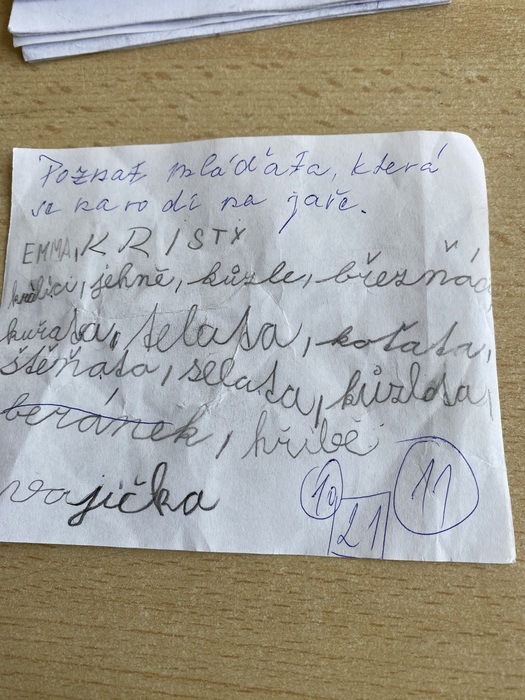 Poznat mláďata, která
se narodí na jaře.
EMMA, KRISTX
králíci, jehně, kůzle, březňáč
kuřata, telata, koťata,
štěňata, selata, kůzlata,
beránek, hříbě
vajíčka
10 21 11